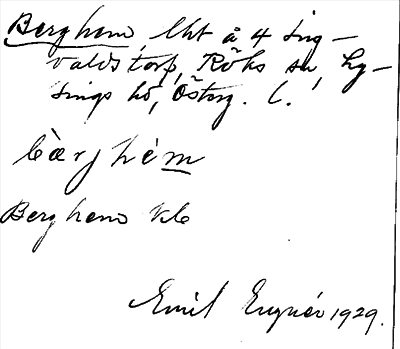 Berghem, lht å 4 Ing-
valdstorp, Röks sn, Ly-
sings hd, Östorg. l.
bærjhèm
Berghem Kle
Emil 1929.